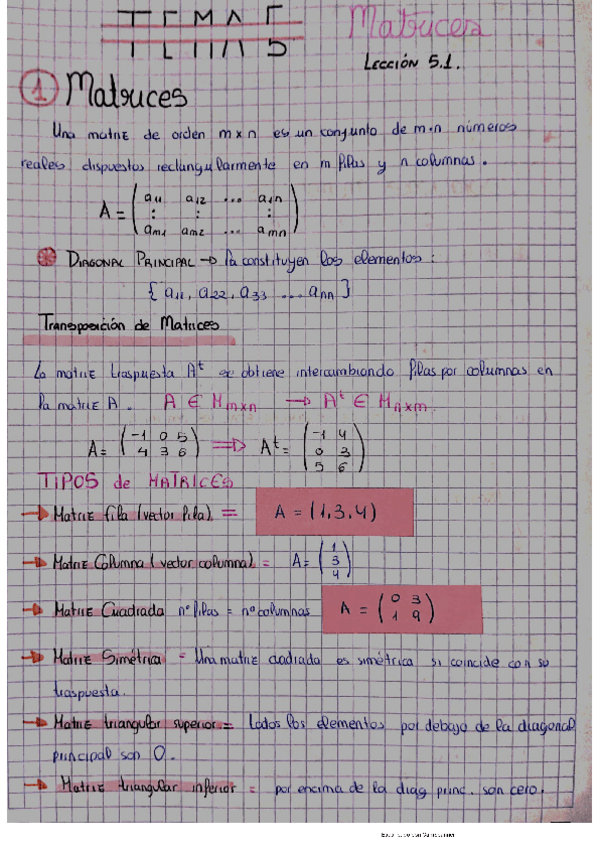 TEMA 5
Matrices
Lección 5.1.
1 Matrices
Una matriz de orden mxn es un conjunto de m·n números
reales dispuestos rectangularmente en m filas y n columnas.
A = ( a11 a12 ... a1n
⋮ ⋮ ⋮
am1 am2 ... amn )
DIAGONAL PRINCIPAL → la constituyen los elementos :
{ a11, a22, a33 ... ann }
Transposición de Matrices
La matriz traspuesta Aᵗ se obtiene intercambiando filas por columnas en
la matriz A. A ∈ Mmxn → Aᵗ ∈ Mnxm.
A = ( -1 0 5 / 4 3 6 ) ⇒ Aᵗ = ( -1 4 / 0 3 / 5 6 )
TIPOS de MATRICES
→ Matriz fila (vector fila) = A = (1,3,4)
→ Matriz Columna (vector columna) = A = ( 1 / 3 / 4 )
→ Matriz Cuadrada nº filas = nº columnas A = ( 0 3 / 1 9 )
→ Matriz Simétrica = Una matriz cuadrada es simétrica si coincide con su
traspuesta.
→ Matriz triangular superior = todos los elementos por debajo de la diagonal
principal son 0.
→ Matriz triangular inferior = por encima de la diag princ. son cero.